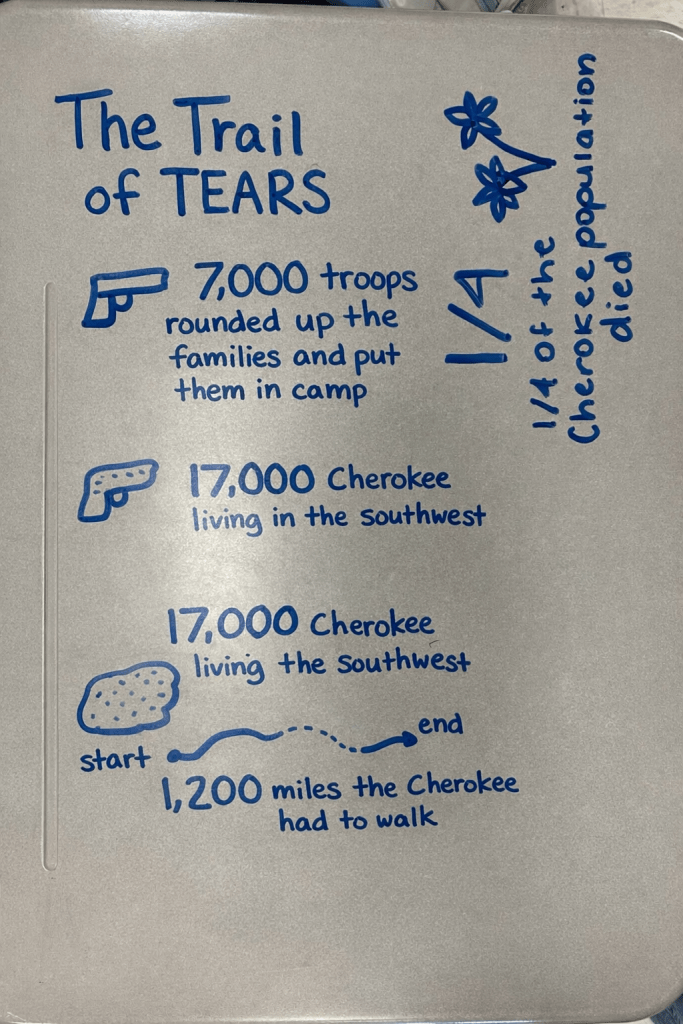 The Trail
of TEARS
7,000 troops
rounded up the
families and put
them in camp
17,000 Cherokee
living in the southwest
17,000 Cherokee
living the southwest
start
end
1,200 miles the Cherokee
had to walk
1/4
1/4 of the
Cherokee population
died